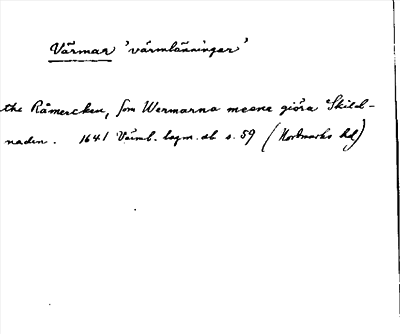 Värmar 'värmlänningar'
the Råmercken, som Wermarna meene giöra Skild-
naden. 1641 Värml. lagm. db s. 59 (Nordmarks hd)